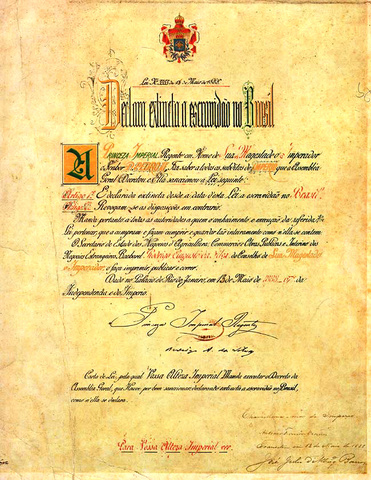 Lei Nº 3353 de 13 de Maio de 1888.
Declara extincta a escravidão no Brasil
A PRINCEZA IMPERIAL Regente em Nome de Sua Magestade o Imperador
Senhor D. PEDRO II Faz saber a todos os subditos do IMPERIO que a Assembléa
Geral Decretou e Ella sanccionou a Lei seguinte:
Artigo 1º É declarada extincta desde a data desta Lei a escravidão no Brazil.
Artigo 2º Revogam-se as disposições em contrario.
Manda portanto a todas as autoridades a quem o conhecimento e execução da referida
Lei pertencer, que a cumpram e façam cumprir e guardar tão inteiramente como n'ella se contem.
O Secretario de Estado dos Negocios d'Agricultura, Commercio e Obras Publicas e Interino dos
Negocios Estrangeiros, Bacharel Rodrigo Augusto da Silva do Conselho de Sua Magestade
o Imperador, o faça imprimir, publicar e correr.
Dado no Palacio do Rio de Janeiro, em 13 de Maio de 1888, 67º da
Independencia e do Imperio.
Princeza Imperial Regente
Rodrigo A. da Silva
Carta de Lei, pela qual Vossa Alteza Imperial Manda executar o Decreto da
Assembléa Geral, que Houve por bem sanccionar, declarando extincta a escravidão no Brazil,
como n'ella se declara.
Para Vossa Alteza Imperial ver.
Chancellaria-mór do Imperio